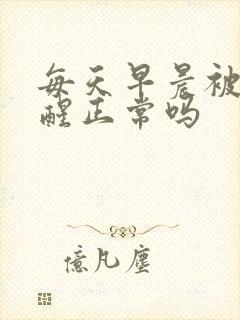 每天早晨被
醒正常吗
億凡塵